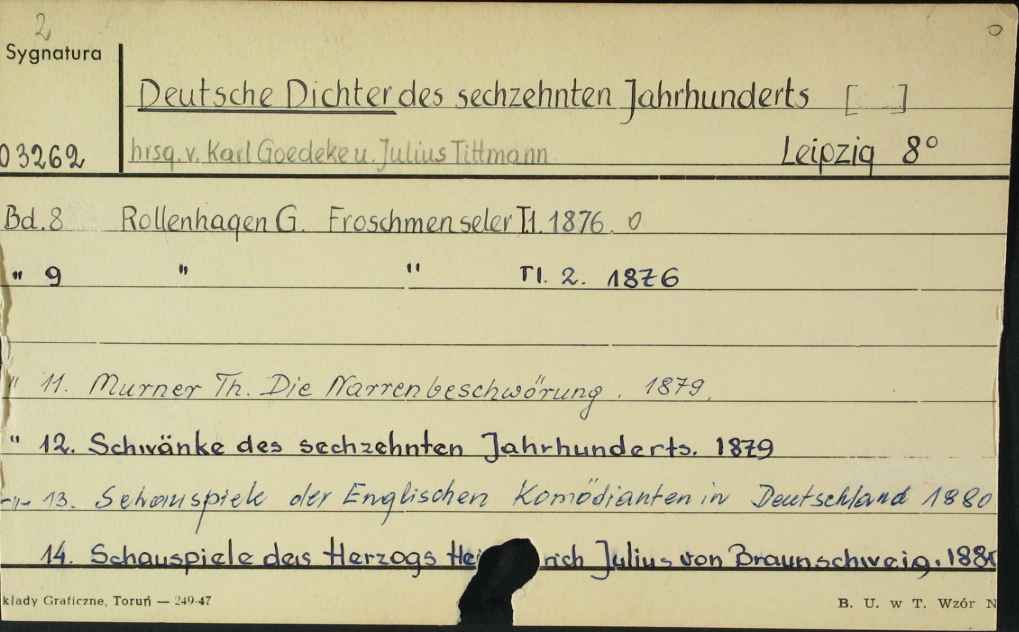 2
Sygnatura
Deutsche Dichter des sechzehnten Jahrhunderts [ ]
03262 hrsg. v. Karl Goedeke u. Julius Tittmann Leipzig 8°
Bd. 8 Rollenhagen G. Froschmenseler Tl. 1. 1876. 0
" 9 " " Tl. 2. 1876
" 11. Murner Th. Die Narrenbeschwörung. 1879.
" 12. Schwänke des sechzehnten Jahrhunderts. 1879
-"- 13. Schauspiele der Englischen Komödianten in Deutschland 1880
14. Schauspiele des Herzogs Hei rich Julius von Braunschweig. 188
klady Graficzne, Toruń — 249-47 B. U. w T. Wzór N